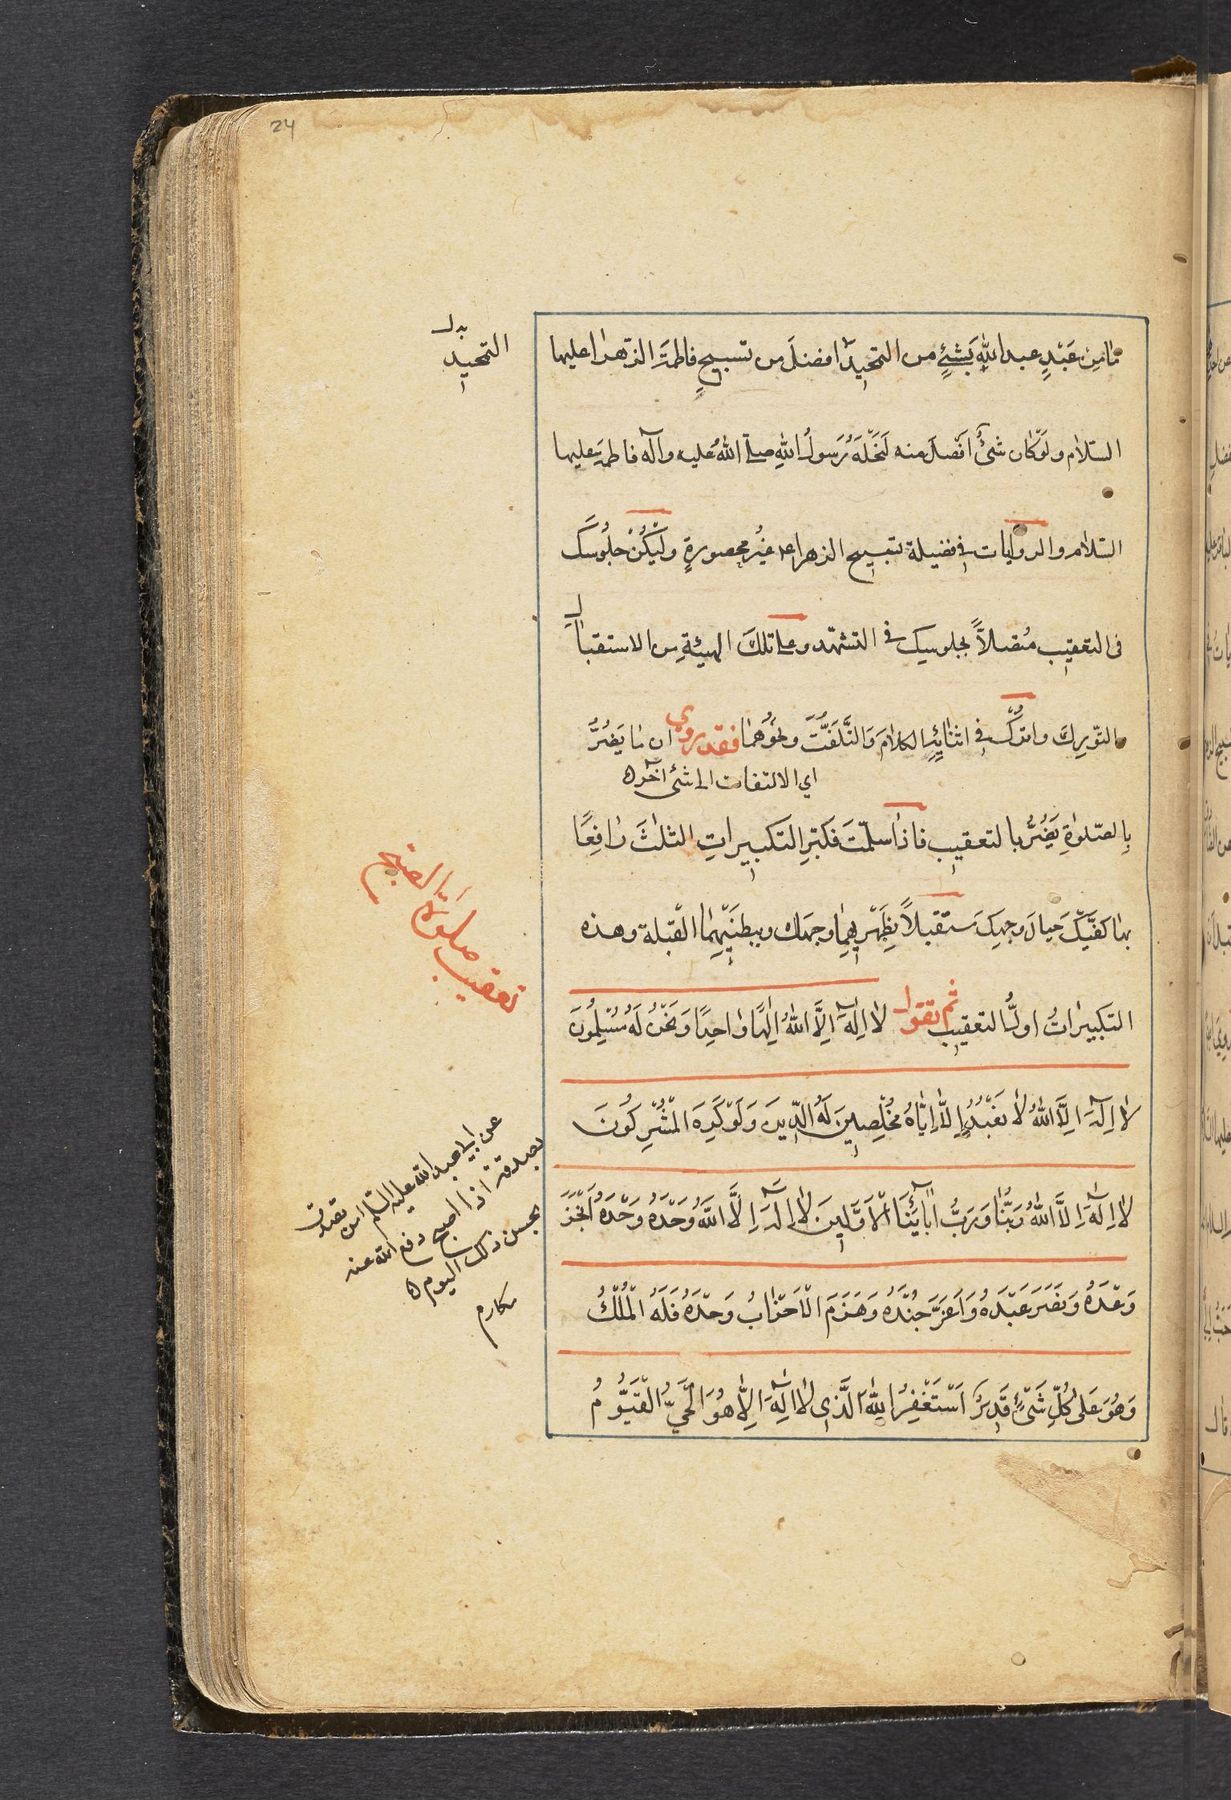 24
ما مِن عَبْدٍ عبد اللهِ بَشئٍ من التحميد افضلَ من تسبيحِ فاطمةَ الزهرا عليها
بدل
التمجيد
السّلام ولَوْ كان شئٌ افضلَ منه لَنَحَلَهُ رَسولُ اللهِ صلى اللهُ عليه وآله فاطمةَ عليها
السّلام والروايات في فضيلة تسبيح الزهرا ع غيرُ محصورةٍ ولْيكُنْ جلوسك
فى التعقيب مُتصلاً بجلوسِك في التشهّد وعلى تلكَ الهيئةِ من الاستقبالِ
والتّورك واترُك في اثنائِهِ الكلامَ والتَّلَفُّتَ ونحوُهما فقد روي ان ما يَضُرُّ
اي الالتفات الى شئ آخر ه
بِالصّلوةِ يَضُرُّ بالتعقيب فاذا سلّمتَ فكبّرِ التكبيراتِ الثلٰثَ رافِعًا
بها كفّيكَ حيالَ وجهِكَ مستقبلاً بِظَهْرِيهِما وجهك وببطنَيْهِما القبلة وهذه
التكبيراتُ اولُ التعقيب ثم تقول لا اِلٰهَ اِلَّا اللهُ اِلٰهًا واحِدًا وَنَحْنُ لَهُ مُسْلِمُونَ
لا اِلٰهَ اِلَّا اللهُ لا نَعْبُدُ اِلَّا اِيّاهُ مُخْلِصينَ لَهُ الدّينَ وَلَوْ كَرِهَ المُشْرِكُونَ
لا اِلٰهَ اِلَّا اللهُ رَبُّنا وَرَبُّ آبائِنَا الْاَوَّلينَ لا اِلٰهَ اِلَّا اللهُ وَحْدَهُ وَحْدَهُ اَنْجَزَ
وَعْدَهُ وَنَصَرَ عَبْدَهُ وَاَعَزَّ جُنْدَهُ وَهَزَمَ الْاَحْزابَ وَحْدَهُ فَلَهُ الْمُلْكُ
وَهُوَ عَلى كُلِّ شَىْءٍ قَدِيرٌ اَسْتَغْفِرُ اللهَ الَّذى لا اِلٰهَ اِلّا هُوَ الْحَيُّ الْقَيُّومُ
تعقيب صلوة الصبح
عن ابي عبد الله عليه السلم من تصدق
بصدقة اذا اصبح دفع الله عنه
نحس ذلك اليوم ه
مكارم